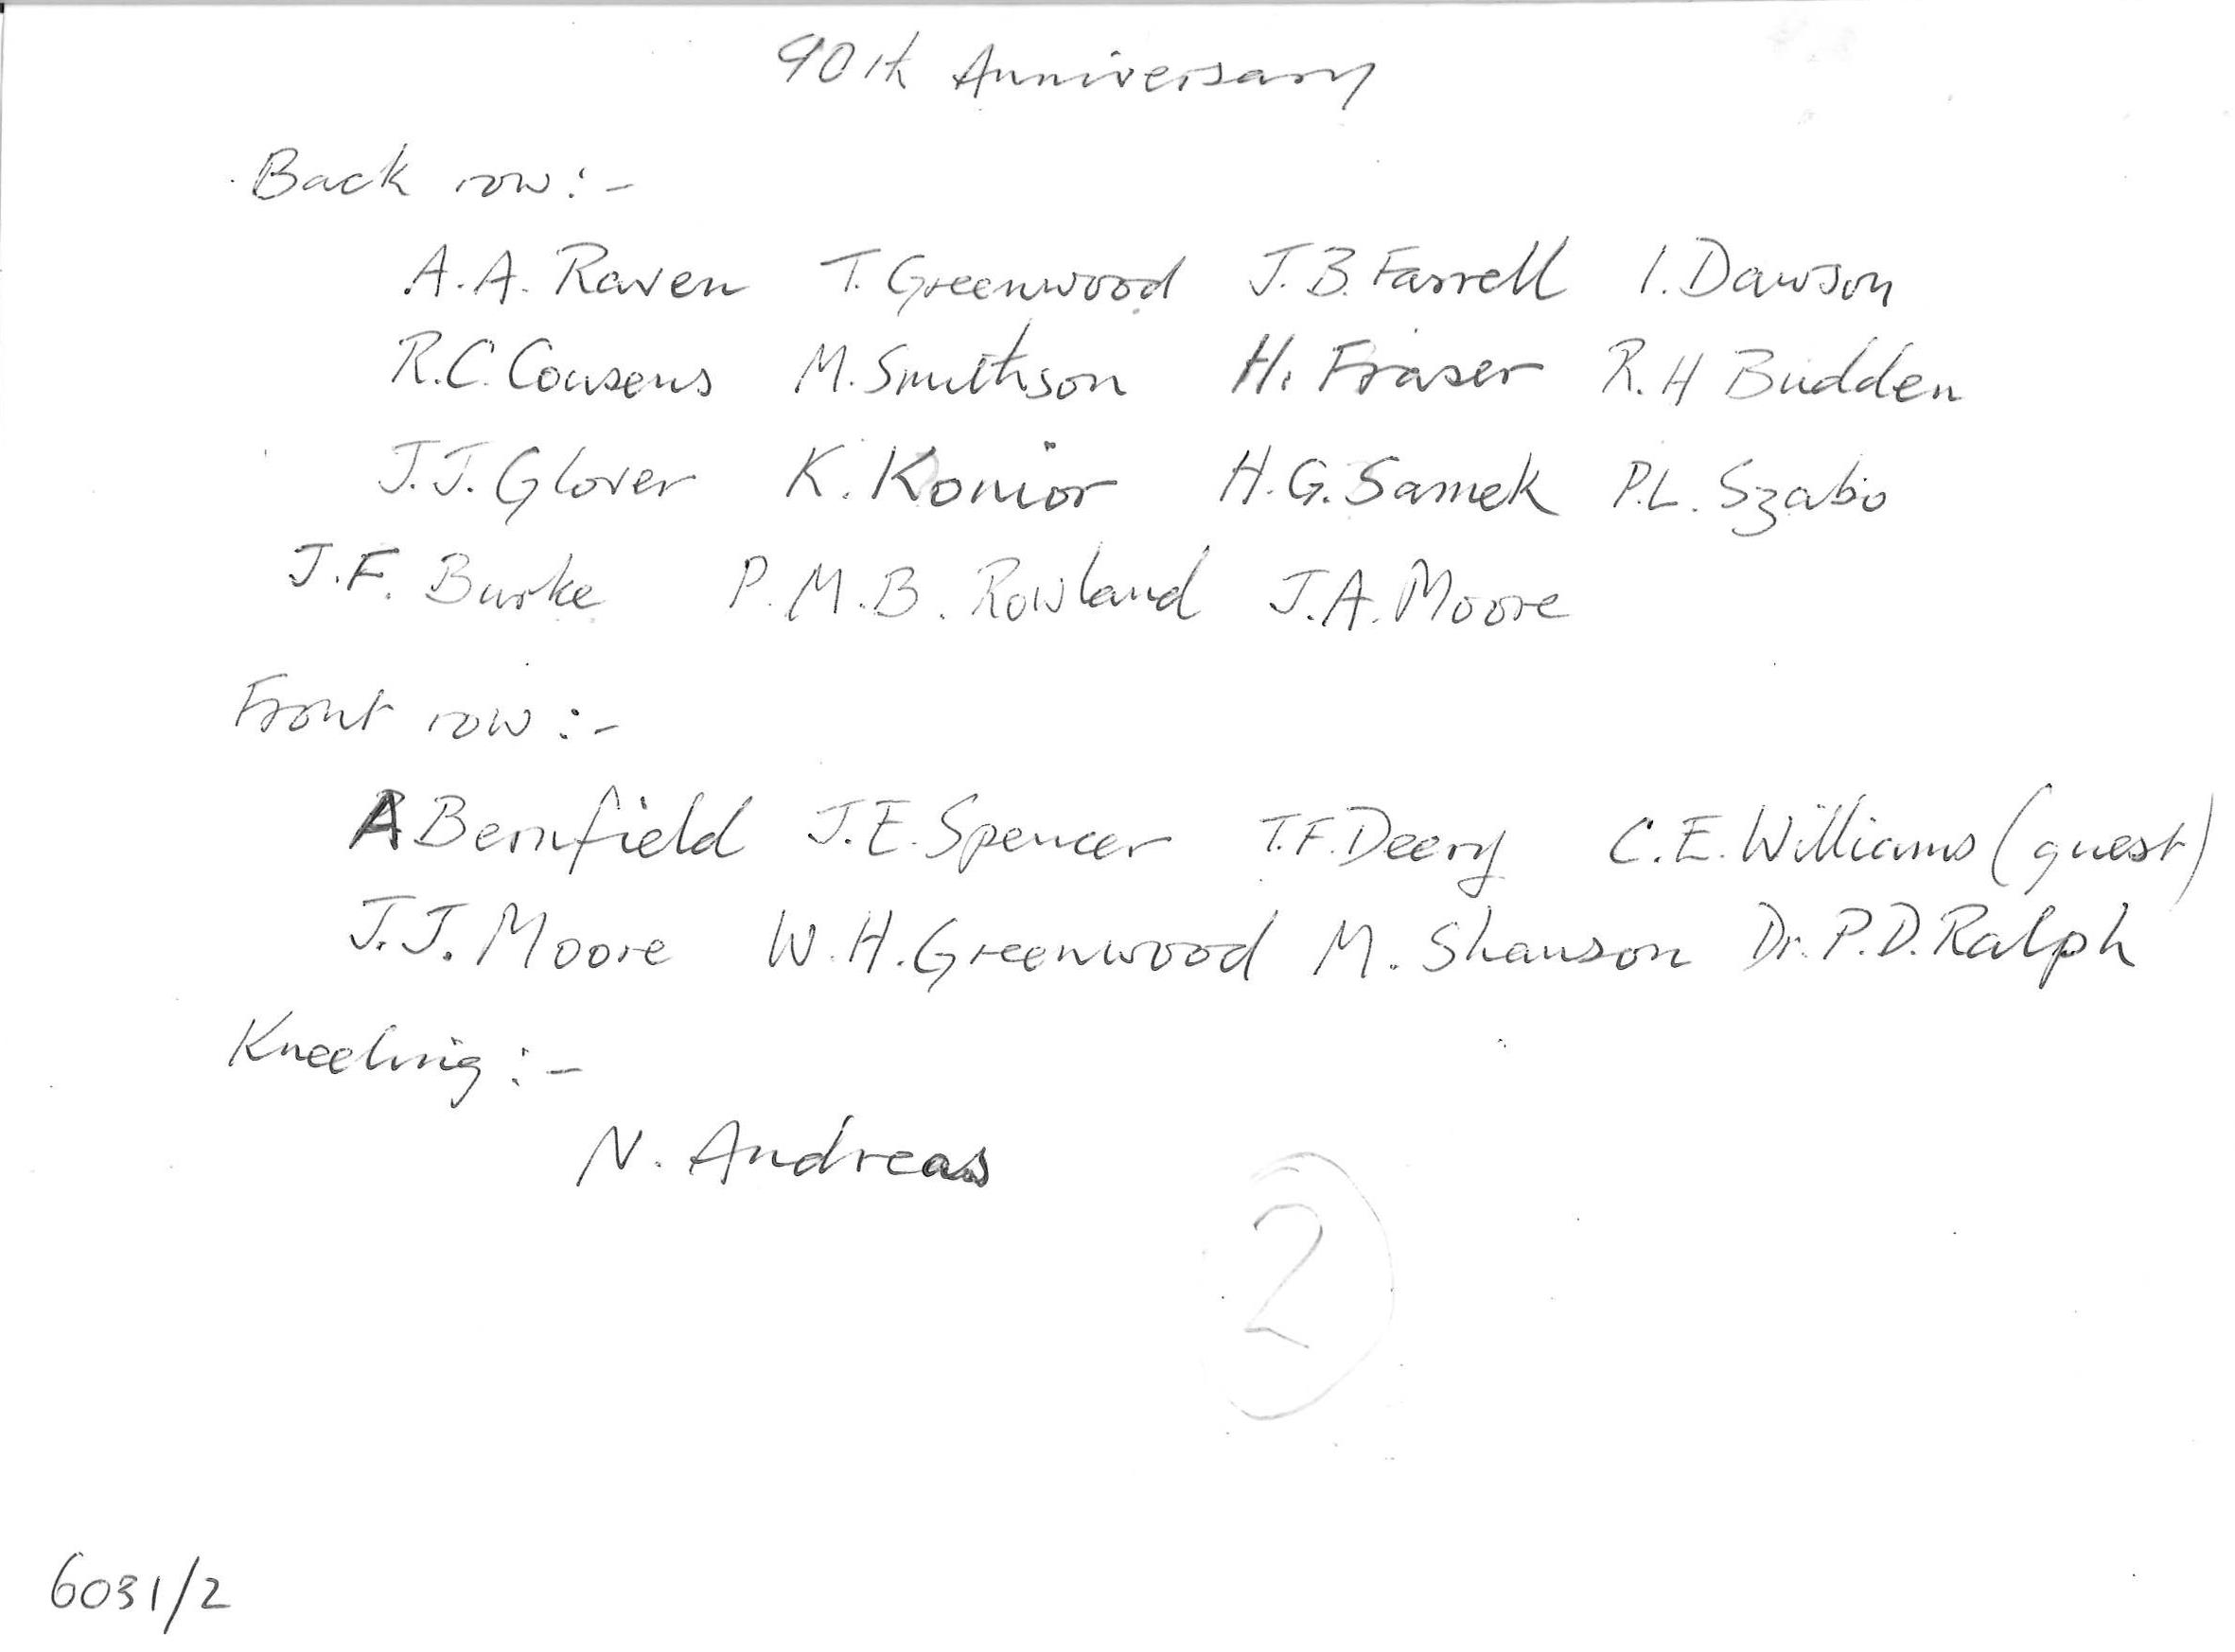 90th Anniversary
Back row:-
A.A. Raven T. Greenwood J.B. Farrell I. Dawson
R.C. Cousens M. Smithson H. Fraser R.H Budden
J.J. Glover K. Konior H.G. Samek P.L. Szabo
J.F. Burke P.M.B. Rowland J.A. Moore
Front row:-
A Bernfield J.E. Spencer T.F. Deery C.E. Williams (guest)
J.J. Moore W.H. Greenwood M. Shanson Dr. P.D. Ralph
Kneeling:-
N. Andreas
2
6031/2